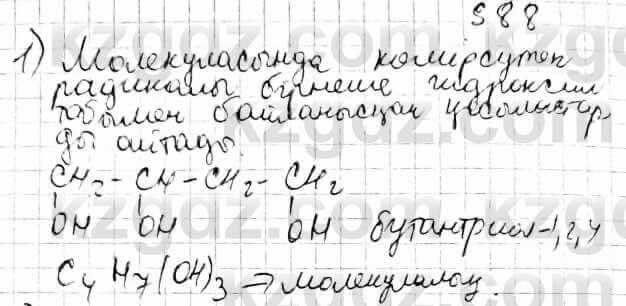 § 88
1) Молекуласында көмірсутек
радикалы бірнеше гидроксил
тобымен байланысқан қосылыстар
ды айтады.
CH2 - CH - CH2 - CH2
OH OH OH бутантриол-1,2,4
C4H7(OH)3 ⇒ молекулалық.